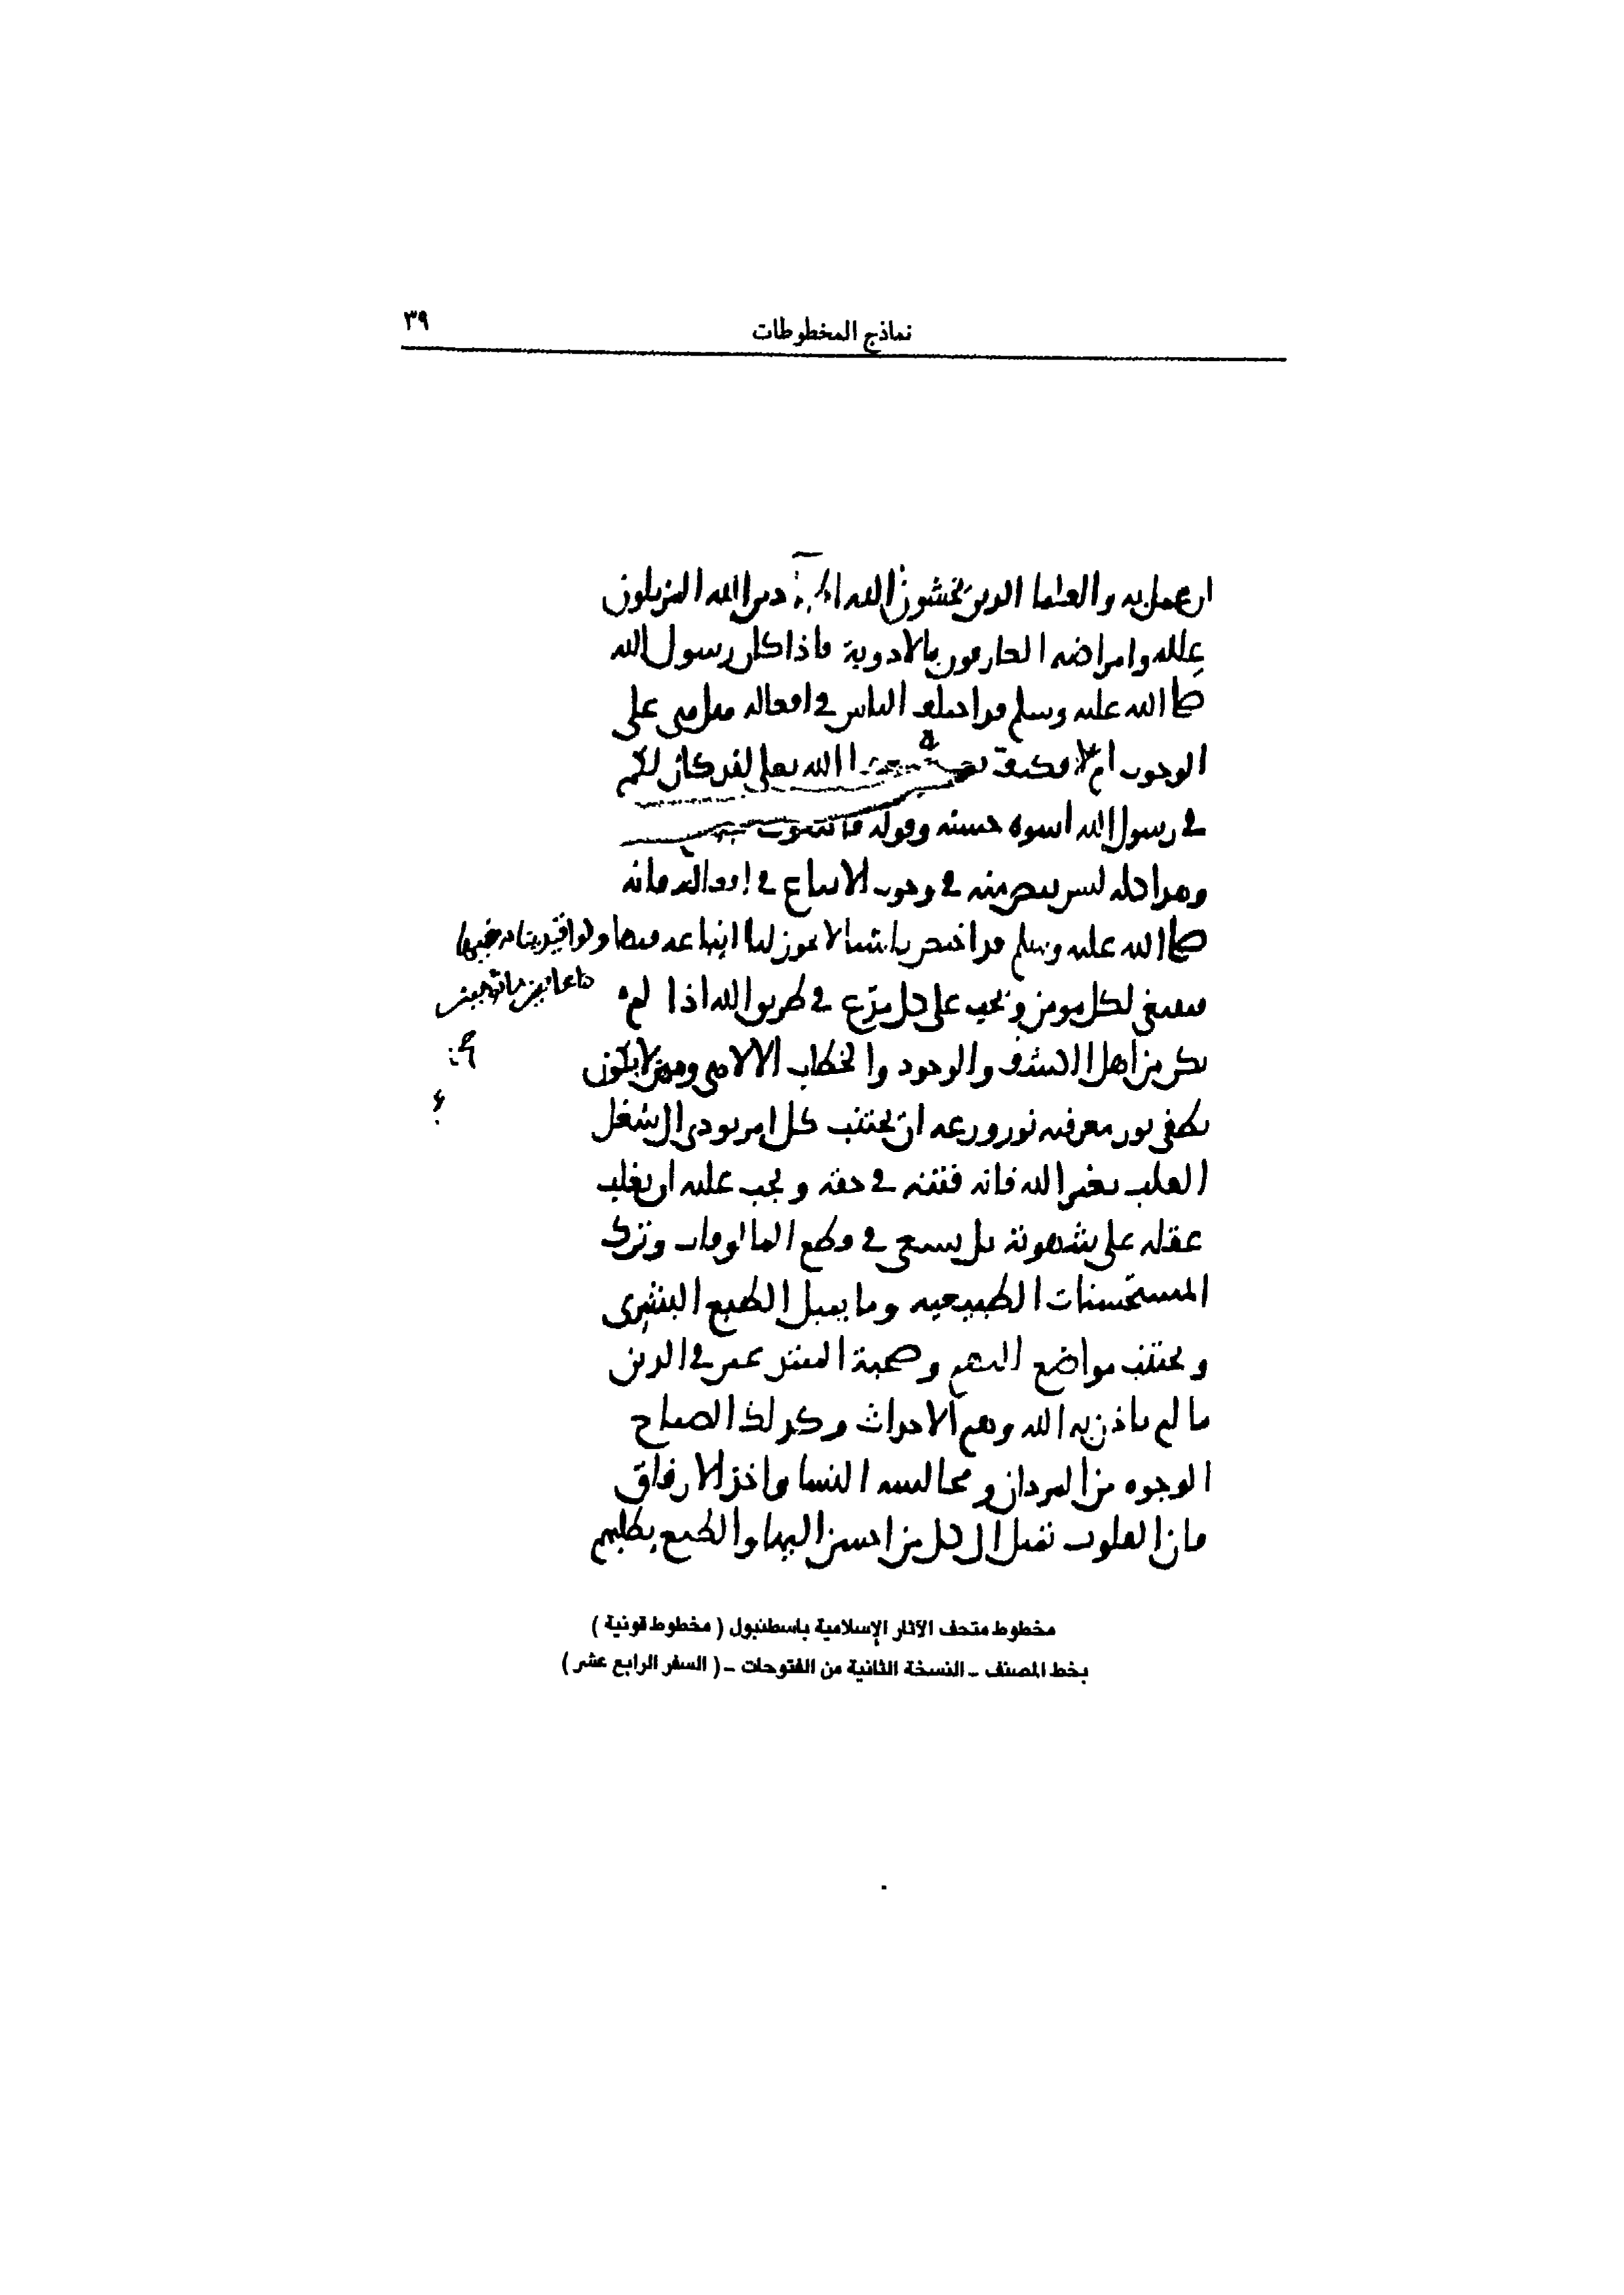 نماذج المخطوطات
٣٩
ان عمل به والعلما الذين يخشون الله دين الله المزيلون
علله وامراضه العارفون بالادوية فاذا كان رسول الله
صلى الله عليه وسلم قد اختلف الناس في افعاله هل هي على
الوجوب ام لا فكيف الله تعلى لقد كان لكم
في رسول الله اسوة حسنه وقوله فاتبعوني
وهذا كله ليس بنص منه في وجوب الاتباع في افعاله فانه
صلى الله عليه وسلم قد اختص باشيا لا يجوز لنا اتباعه فيها ولو اقتدينا به فيها
فينبغي لكل مومن ويجب على كل مدّع في طريق الله اذا لم
يكن من اهل الكشف والوجود والخطاب الالاهي وممن لا يكون
يطفي نور معرفته نور ورعه ان يجتنب كل امر يودي الى شغل
القلب بغير الله فانه فتنة في حقه ويجب عليه ان يغلب
عقله على شهوته بل يسعى في قطع المالوفات وترك
المستحسنات الطبيعيه وما يميل الطبع البشرى
ويجتنب مواضع التهم وصحبة المبتدعين في الدين
ما لم ياذن به الله وهم الاحداث وكذلك الصباح
الوجوه من المردان ومجالسه النسا واخذ الارفاق
فان القلوب تميل الى كل من احسن اليها والطبع يطلبهم
مخطوط متحف الآثار الإسلامية باسطنبول ( مخطوط قونية )
بخط المصنف - النسخة الثانية من الفتوحات - ( السفر الرابع عشر )